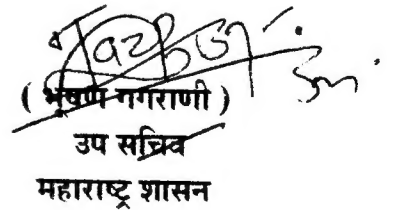 ( भूषण गगराणी )
उप सचिव
महाराष्ट्र शासन